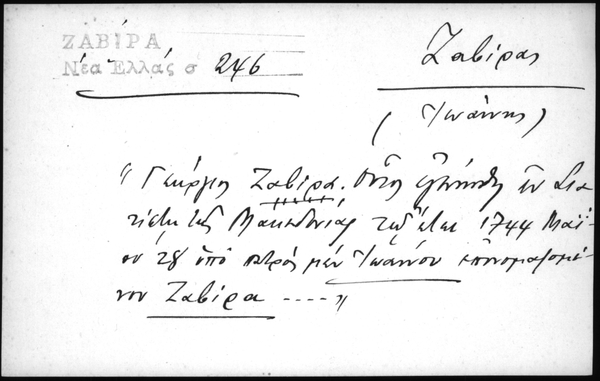 ΖΑΒΙΡΑ
Νέα Ἑλλάς σ 246
Ζαβίρας
(Ἰωάννης)
"Γεώργιος Ζαβίρα. Οὗτος ἐγεννήθη ἐν Σια
τίστῃ τῆς Μακεδονίας τῷ ἔτει 1744 Μαΐ-
ου 28 ὑπὸ πατρὸς μὲν Ἰωάννου ἐπονομαζομέ-
νου Ζαβίρα ----"